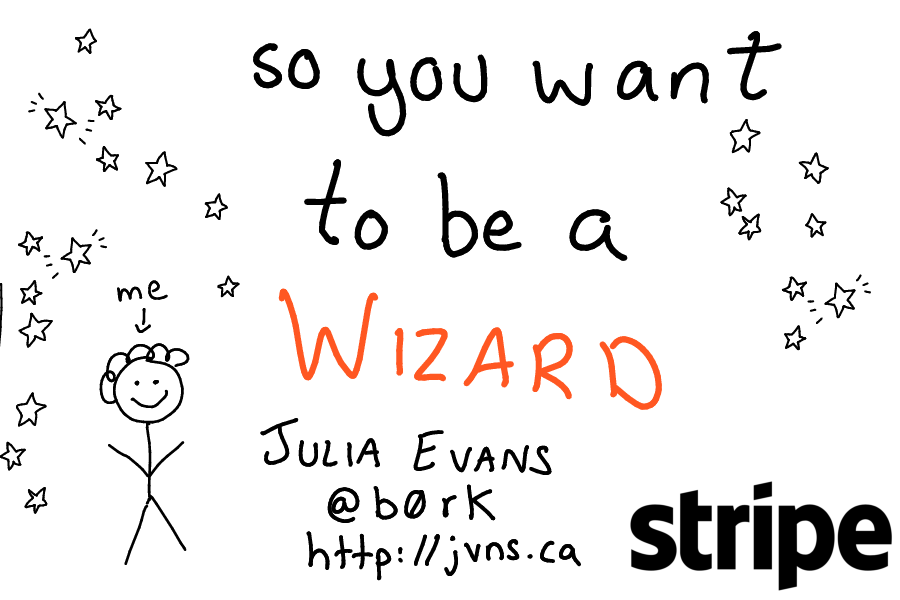 so you want
to be a
WIZARD
me
JULIA EVANS
@b0rk
http://jvns.ca
stripe